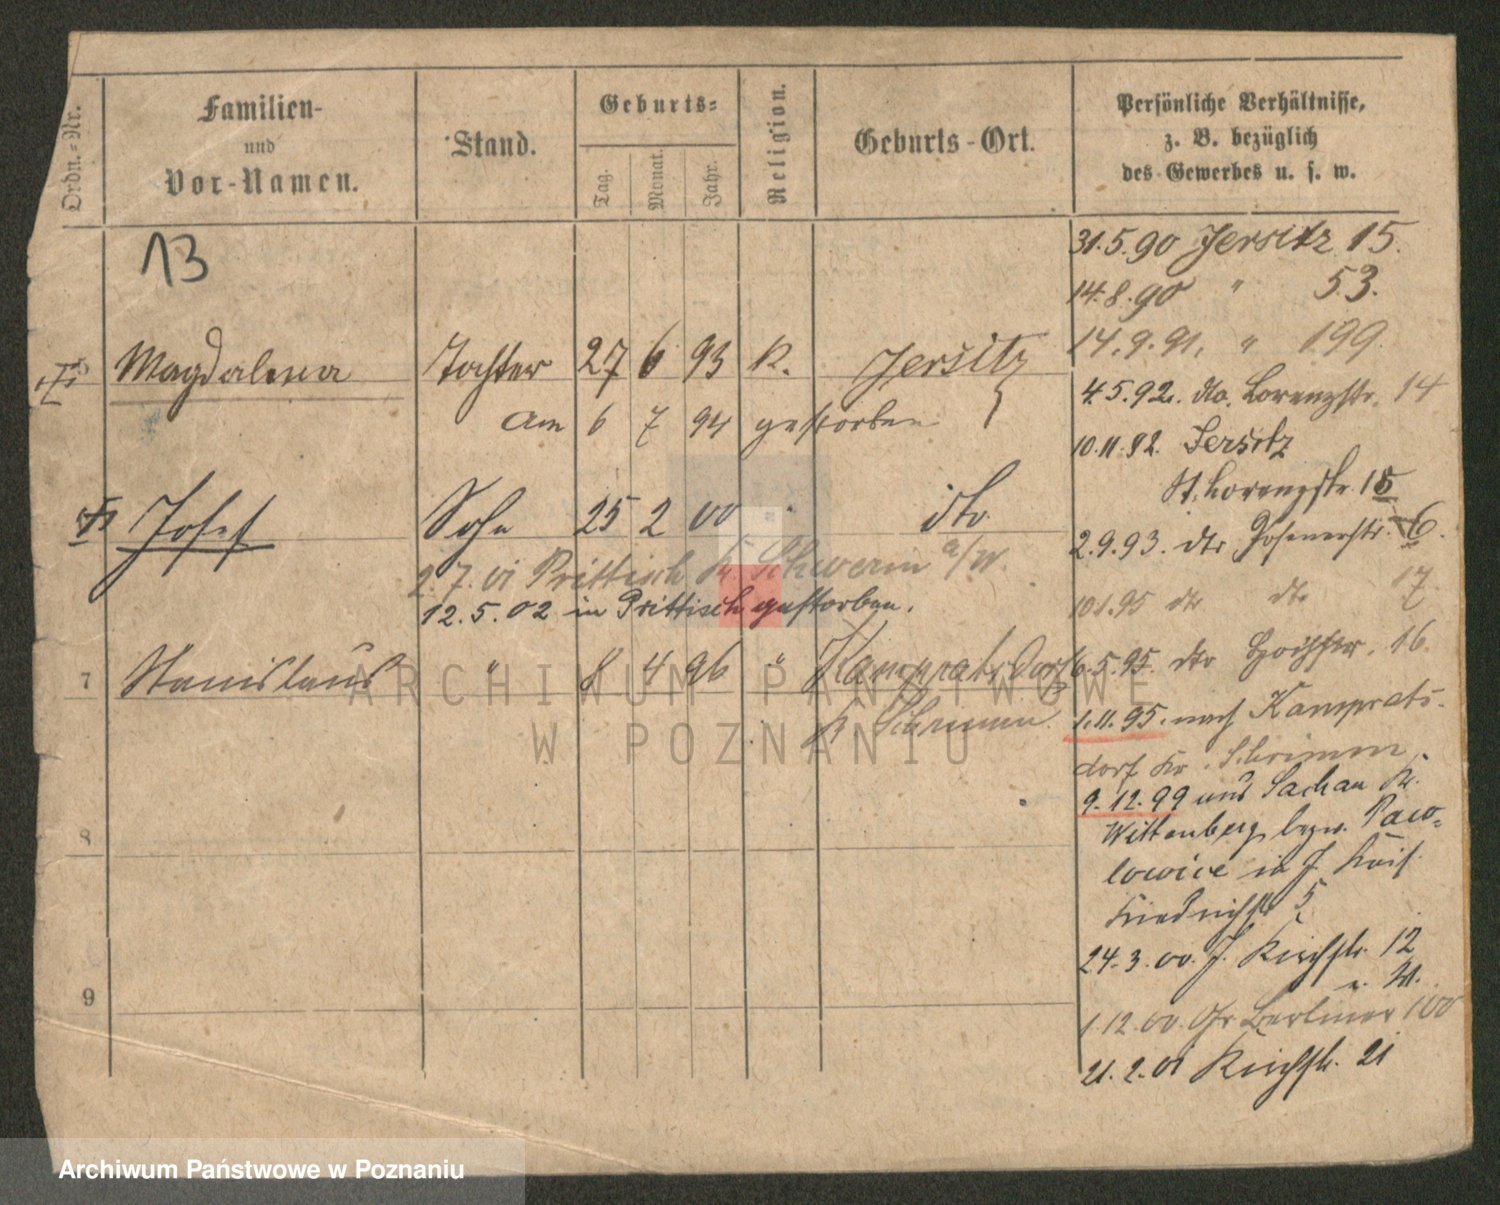 Ordn.-Nr.
Familien-
und
Vor-Namen.
Stand.
Geburts-
Tag.
Monat.
Jahr.
Religion.
Geburts-Ort.
Persönliche Verhältnisse,
z. B. bezüglich
des Gewerbes u. s. w.
13
Magdalena Tochter 27 6 93 K. Jersitz
am 6 7 94 gestorben
Josef Sohn 25 2 00 " dto.
2.7.01 Prittisch Kr. Schwerin a/W.
12.5.02 in Prittisch gestorben.
7 Stanislaus " 8 4 96 " Kampratsdorf
Kr Schrimm.
8
9
31.5.90 Jersitz 15.
14.8.90 " 53.
14.9.91. " 199.
4.5.92. dto. Lorenzstr. 14
10.11.92. Jersitz
St. Lorenzstr. 15
2.9.93. dto Posenerstr. 6.
10.1.95 dto dto 17
6.5.95. dto 16.
1.11.95. nach Kamprats-
dorf Kr. Schrimm.
9.12.99 aus Sachau Kr.
Wittenberg bezw. Paw-
lowice in J. Kais.
Friedrichstr 5
24.3.00. J. Kirchstr. 12
1.12.00. Gr Berliner 100
21.2.01 Kirchstr. 21
ARCHIWUM PAŃSTWOWE
W POZNANIU
Archiwum Państwowe w Poznaniu